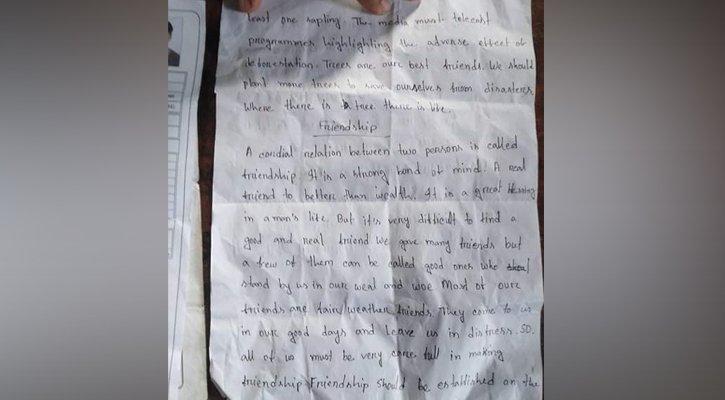 least one sapling. The media must telecast
programmes highlighting the adverse effect of
deforestation. Trees are our best friends. We should
plant more trees to save ourselves from disasters
Where there is tree there is life.
Friendship
A condial relation between two persons is called
friendship. It is a strong bond of mind. A real
friend to better than wealth. It is a great blessing
in a man's life. But it's very difficult to find a
good and real friend We gave many friends but
a few of them can be called good ones who
stand by us in our weal and woe Most of our
friends are fair/weather friends. They come to us
in our good days and leave us in distress. SO.
all of us must be very care full in making
friendship Friendship should be established on the